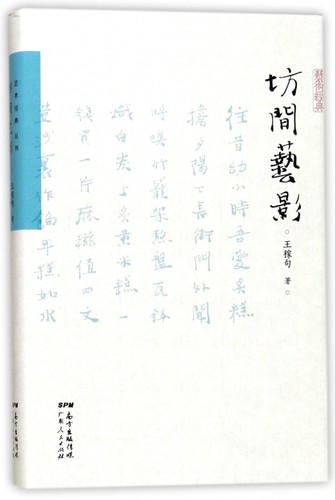 藝術經典
坊間藝影
王稼句 著
往昔幼小時吾愛炙糕
擔夕陽下長街門外聞
呼喚竹籠架熬盤瓦缽
熾白炭上炙黃米糕一
錢買一片麻糍值四文
豆沙裹作餡年糕如水
SPM
南方出版传媒
广东人民出版社